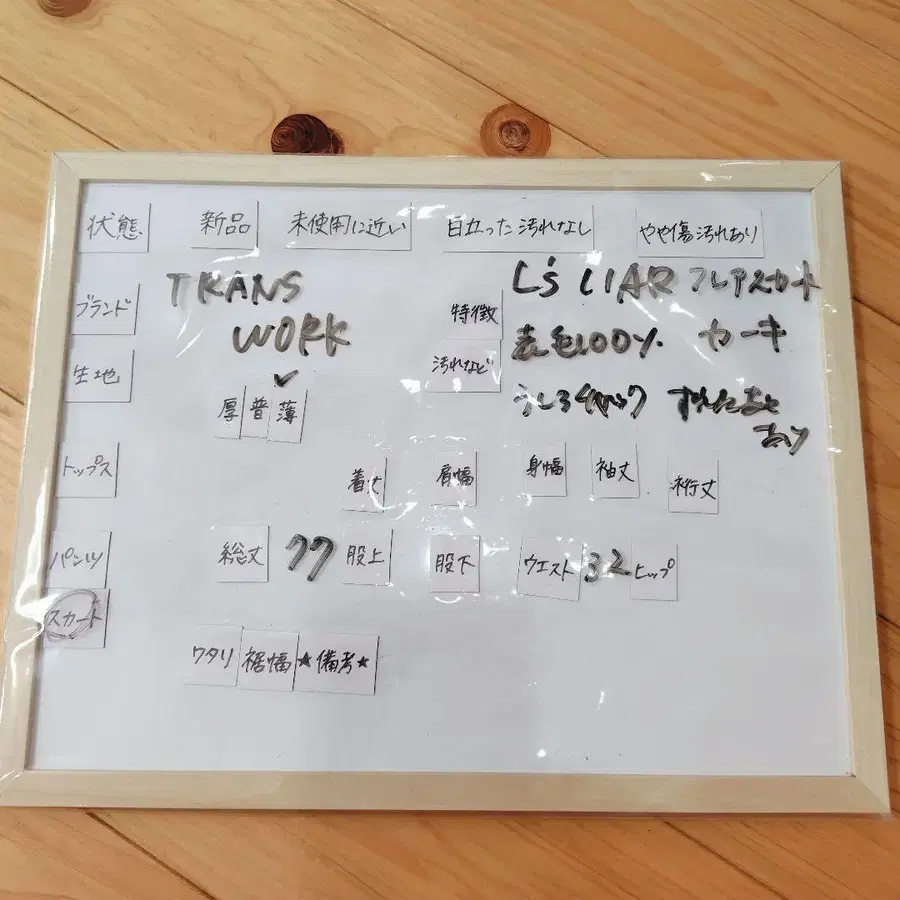 状態 新品 未使用に近い 目立った汚れなし やや傷汚れあり
ブランド TRANS WORK
特徴 L's LIAR フレアスカート
生地 厚 普 薄 ✓
汚れなど 表毛100% カーキ
うしろ
あり
トップス 着丈 肩幅 身幅 袖丈 裄丈
パンツ 総丈 77 股上 股下 ウエスト 32 ヒップ
スカート
ワタリ 裾幅 ★備考★